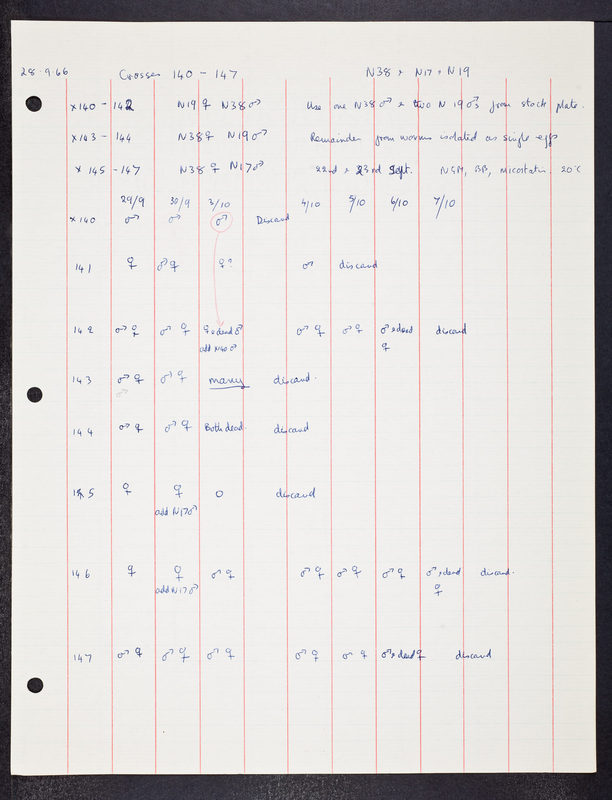 28·9·66 Crosses 140 - 147 N38 × N17 × N19
×140 - 142 N19 ♀ N38 ♂ Use one N38 ♂ & two N19 ♂s from stock plate.
×143 - 144 N38 ♀ N19 ♂ Remainder from worms isolated as single eggs
× 145 - 147 N38 ♀ N17 ♂ 22nd & 23rd Sept. NGM, BB, micostatin. 20°C
29/9 30/9 3/10 4/10 5/10 6/10 7/10
×140 ♂ ♂ ♂ Discard
141 ♀ ♂♀ ♀? ♂ discard
142 ♂ ♀ ♂ ♀ ♀ & dead ♂ ♂ ♀ ♂ ♀ ♂ & dead discard
add N40 ♂ ♀
143 ♂ ♀ ♂ ♀ many discard.
♂
144 ♂ ♀ ♂ ♀ Both dead. discard
145 ♀ ♀ 0 discard
add N17♂
146 ♀ ♀ ♂ ♀ ♂ ♀ ♂ ♀ ♂ ♀ ♂ & dead discard.
add N17♂ ♀
147 ♂ ♀ ♂ ♀ ♂ ♀ ♂ ♀ ♂ ♀ ♂ & dead ♀ discard